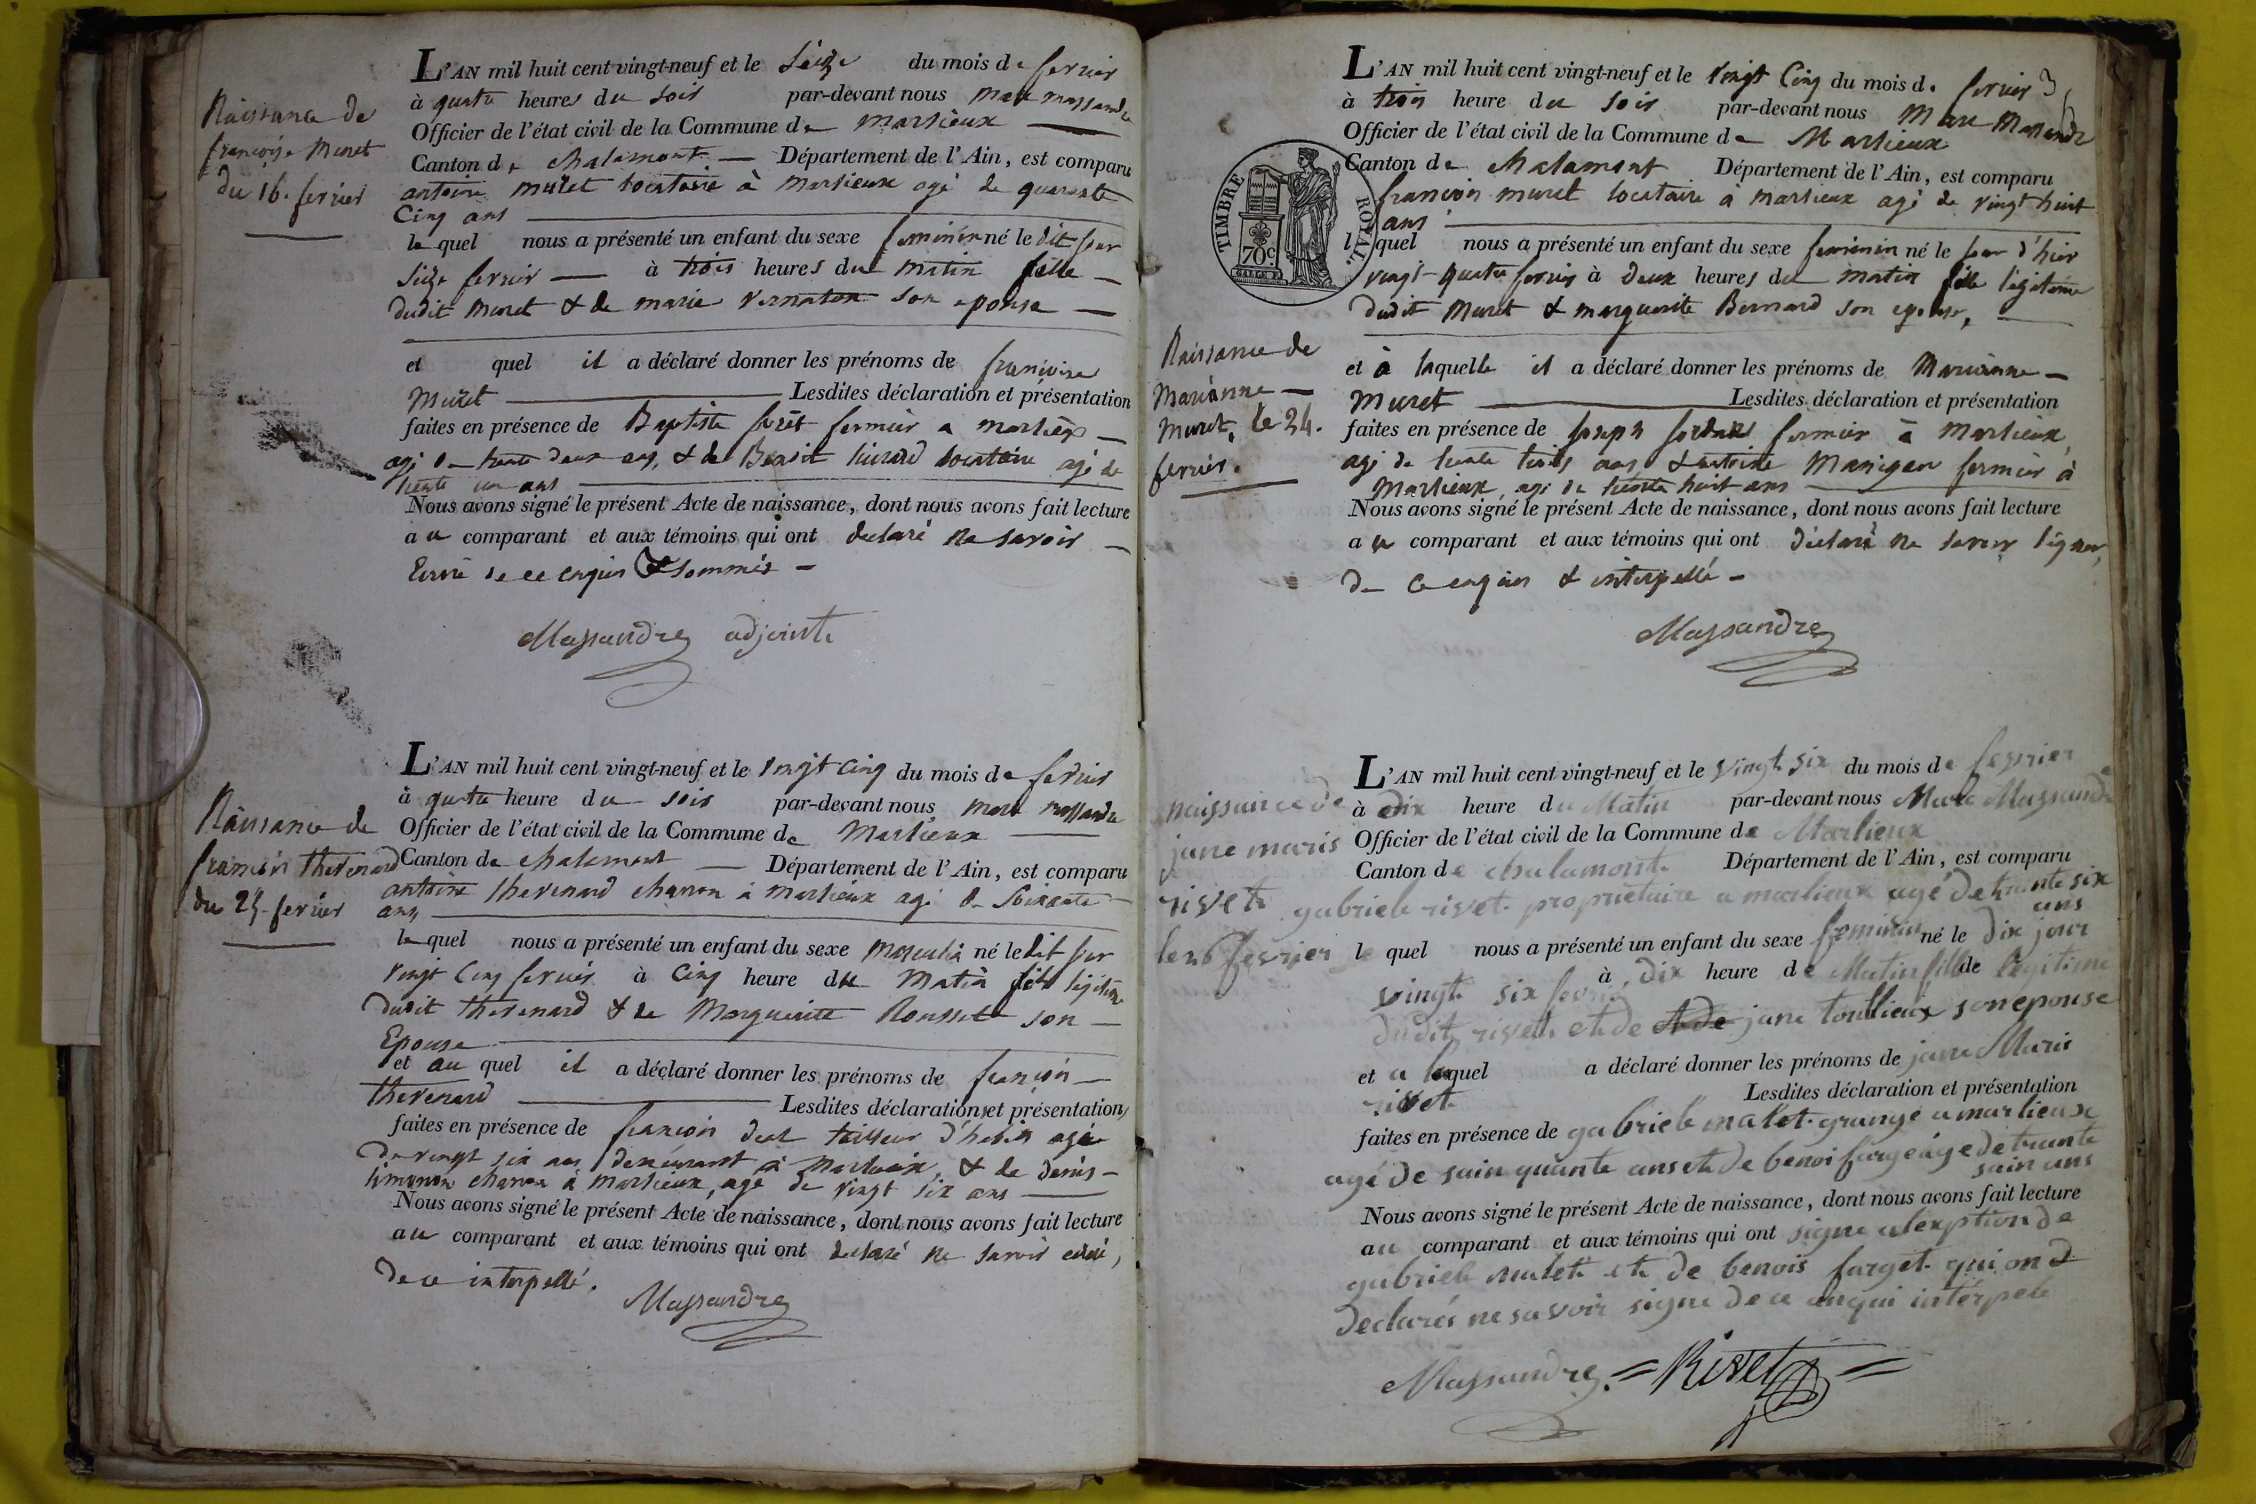 Naissance de
françoise Muret
du 16. fevrier
L'AN mil huit cent vingt-neuf et le Seize du mois de fevrier
à quatre heures du soir par-devant nous marc massandre
Officier de l'état civil de la Commune de marlieux
Canton de chalamont Département de l'Ain, est comparu
antoine muret locataire à marlieux agé de quarante
Cinq ans
le quel nous a présenté un enfant du sexe feminin né le dit jour
Seize fevrier à trois heures du matin fille
dudit Muret & de marie son epouse
et quel il a déclaré donner les prénoms de françoise
Muret Lesdites déclaration et présentation
faites en présence de Baptiste fermier a marlieux
agé de trente deux ans, & de Benoit locataire agé de
trente un ans
Nous avons signé le présent Acte de naissance, dont nous avons fait lecture
au comparant et aux témoins qui ont declaré ne savoir
Ecrire de ce enquis & sommés
Massandre adjoint
Naissance de
françois thevenard
du 25. fevrier
L'AN mil huit cent vingt-neuf et le vingt cinq du mois de fevrier
à quatre heure du soir par-devant nous marc massandre
Officier de l'état civil de la Commune de Marlieux
Canton de chalamont Département de l'Ain, est comparu
antoine thevenard charron à marlieux agé de Soixante
ans
le quel nous a présenté un enfant du sexe masculin né le dit jour
vingt Cinq fevrier à Cinq heure du Matin fils légitime
dudit thevenard & de Marguerite Rousset son
Epouse
et au quel il a déclaré donner les prénoms de françois
thevenard Lesdites déclaration et présentation
faites en présence de françois tailleur d'habits agé
de vingt six ans demeurant à Marlieux, & de denis
charron à Marlieux, agé de vingt six ans
Nous avons signé le présent Acte de naissance, dont nous avons fait lecture
au comparant et aux témoins qui ont declaré ne savoir
de ce interpellé.
Massandre
TIMBRE ROYAL
70c.
Naissance de
Marianne
Muret, le 24.
fevrier.
L'AN mil huit cent vingt-neuf et le vingt Cinq du mois de fevrier
à trois heure du soir par-devant nous Marc Massandre
Officier de l'état civil de la Commune de Marlieux
Canton de Chalamont Département de l'Ain, est comparu
françois muret locataire à marlieux agé de vingt huit
ans
lequel nous a présenté un enfant du sexe feminin né le jour d'hier
vingt-quatre fevrier à deux heures du matin fille légitime
dudit Muret & marguerite Bernard son epouse,
et à laquelle il a déclaré donner les prénoms de Marianne
Muret Lesdites déclaration et présentation
faites en présence de joseph fermier à Marlieux,
agé de trente trois ans & antoine Manigan fermier à
Marlieux, agé de trente huit ans
Nous avons signé le présent Acte de naissance, dont nous avons fait lecture
au comparant et aux témoins qui ont déclaré ne savoir signer,
de ce enquis & interpellé
Massandre
naissance de
jane marie
rivet
le 26 fevrier
L'AN mil huit cent vingt-neuf et le vingt six du mois de fevrier
à dix heure du Matin par-devant nous Marc Massandre
Officier de l'état civil de la Commune de Marlieux
Canton de chalamont Département de l'Ain, est comparu
gabriele rivet proprietaire a marlieux agé de trante six
ans
le quel nous a présenté un enfant du sexe feminin né le dix jour
vingt six fevrier à dix heure de Matin fille de legitime
dudit rivet et de jane toullieux son epouse
et a laquel a déclaré donner les prénoms de jane Marie
rivet Lesdites déclaration et présentation
faites en présence de gabriele malet grangé a marlieux
agé de sainquante ans et de benoi farge agé de trante
sain ans
Nous avons signé le présent Acte de naissance, dont nous avons fait lecture
au comparant et aux témoins qui ont signe alexption de
gabriele malet et de benois farget qui on
declarés ne savoir signe de ce anqui interpele
Massandre = Rivet =